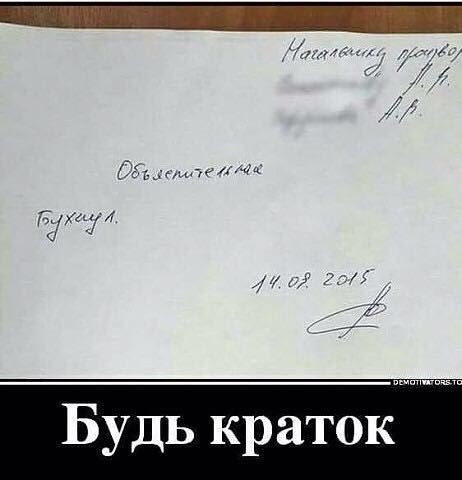 Начальнику произво
А.
А.В.
Объяснительная
Бухнул.
14.08.2015
DEMOTIVATORS.TO
Будь краток